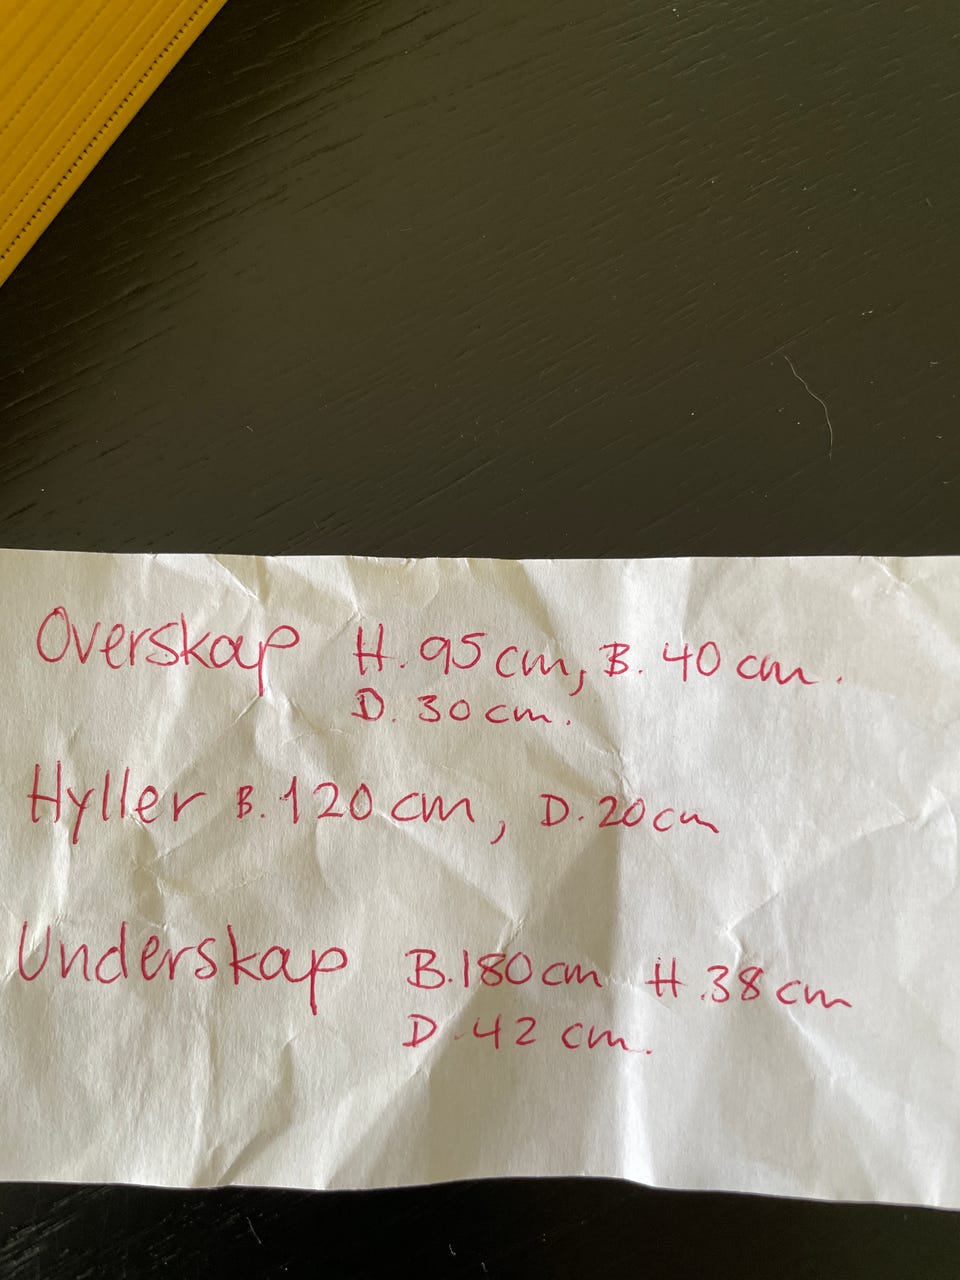 Overskap H. 95 cm, B. 40 cm.
D. 30 cm.
Hyller B. 120 cm, D. 20 cm
Underskap B. 180 cm H. 38 cm
D. 42 cm.